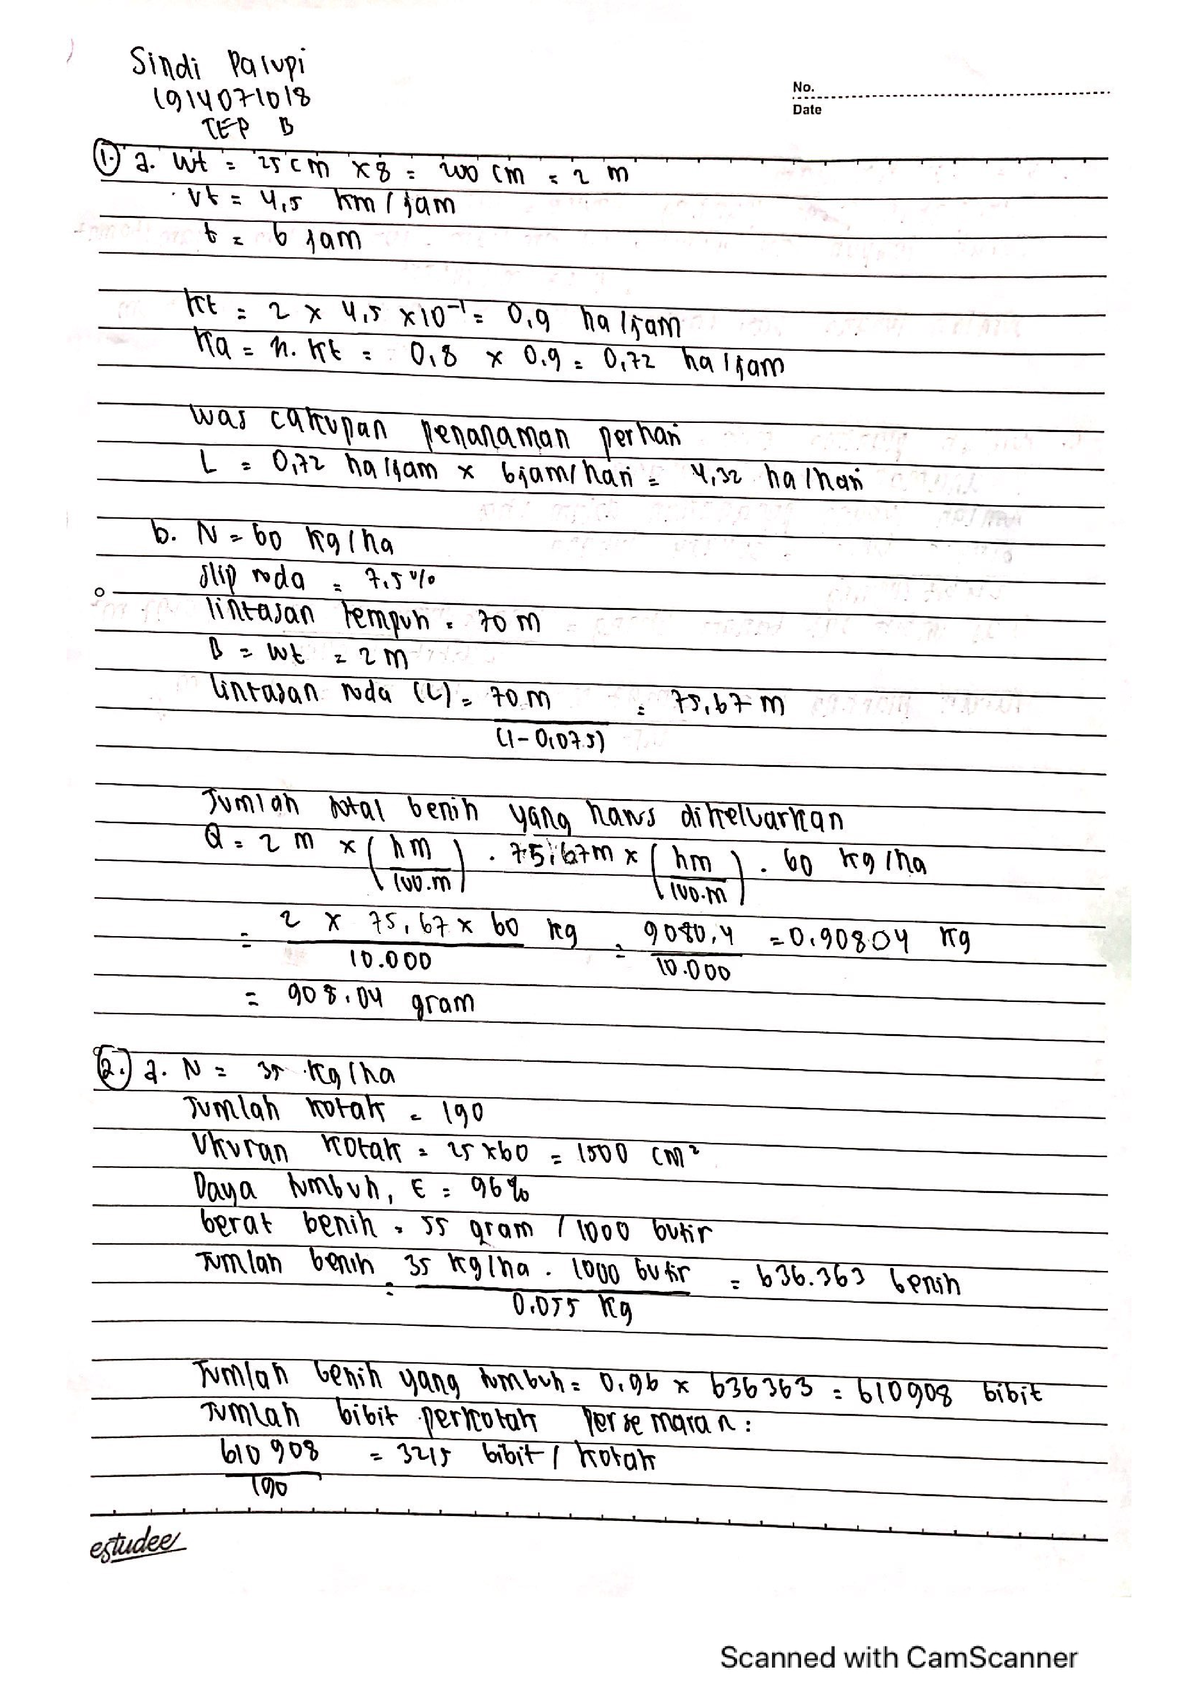 Sindi Palupi
1914071018
TEP B
No.
Date
1. a. Wt = 25 cm x 8 = 200 cm = 2 m
Vt = 4,5 km / jam
t = 6 jam
Kt = 2 x 4,5 x 10⁻¹ = 0,9 ha/jam
Ka = n. Kt = 0,8 x 0,9 = 0,72 ha/jam
Luas cakupan penanaman perhari
L = 0,72 ha/jam x 6 jam/hari = 4,32 ha/hari
b. N = 60 kg/ha
slip roda = 7,5%
lintasan tempuh = 70 m
B = Wt = 2 m
lintasan roda (L) = 70 m / (1-0,075) = 75,67 m
Jumlah total benih yang harus dikeluarkan
Q = 2 m x (hm / 100.m) . 75,67m x (hm / 100.m) . 60 kg/ha
= 2 x 75,67 x 60 / 10.000 kg = 9080,4 / 10.000 = 0,90804 kg
= 908,04 gram
2. a. N = 35 kg/ha
Jumlah kotak = 190
Ukuran kotak = 25 x 60 = 1500 cm²
Daya tumbuh, E = 96%
berat benih = 55 gram / 1000 butir
Jumlah benih = 35 kg/ha . 1000 butir / 0,055 kg = 636.363 benih
Jumlah benih yang tumbuh = 0,96 x 636363 = 610908 bibit
Jumlah bibit perkotak persemaian :
610 908 / 190 = 3215 bibit / kotak
estudee
Scanned with CamScanner